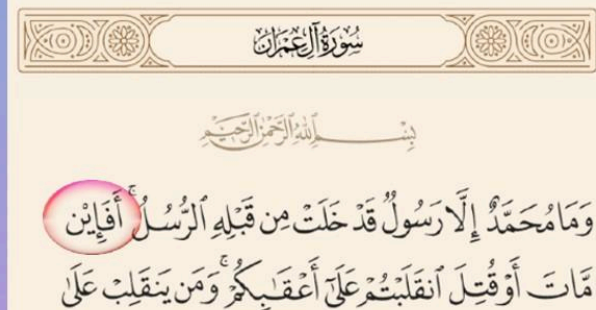 سُورَةُ آلِ عِمْرَانَ
بِسْمِ ٱللَّهِ ٱلرَّحْمَٰنِ ٱلرَّحِيمِ
وَمَا مُحَمَّدٌ إِلَّا رَسُولٌ قَدْ خَلَتْ مِن قَبْلِهِ ٱلرُّسُلُ ۚ أَفَإِيْن
مَّاتَ أَوْ قُتِلَ ٱنقَلَبْتُمْ عَلَىٰٓ أَعْقَٰبِكُمْ ۚ وَمَن يَنقَلِبْ عَلَىٰ